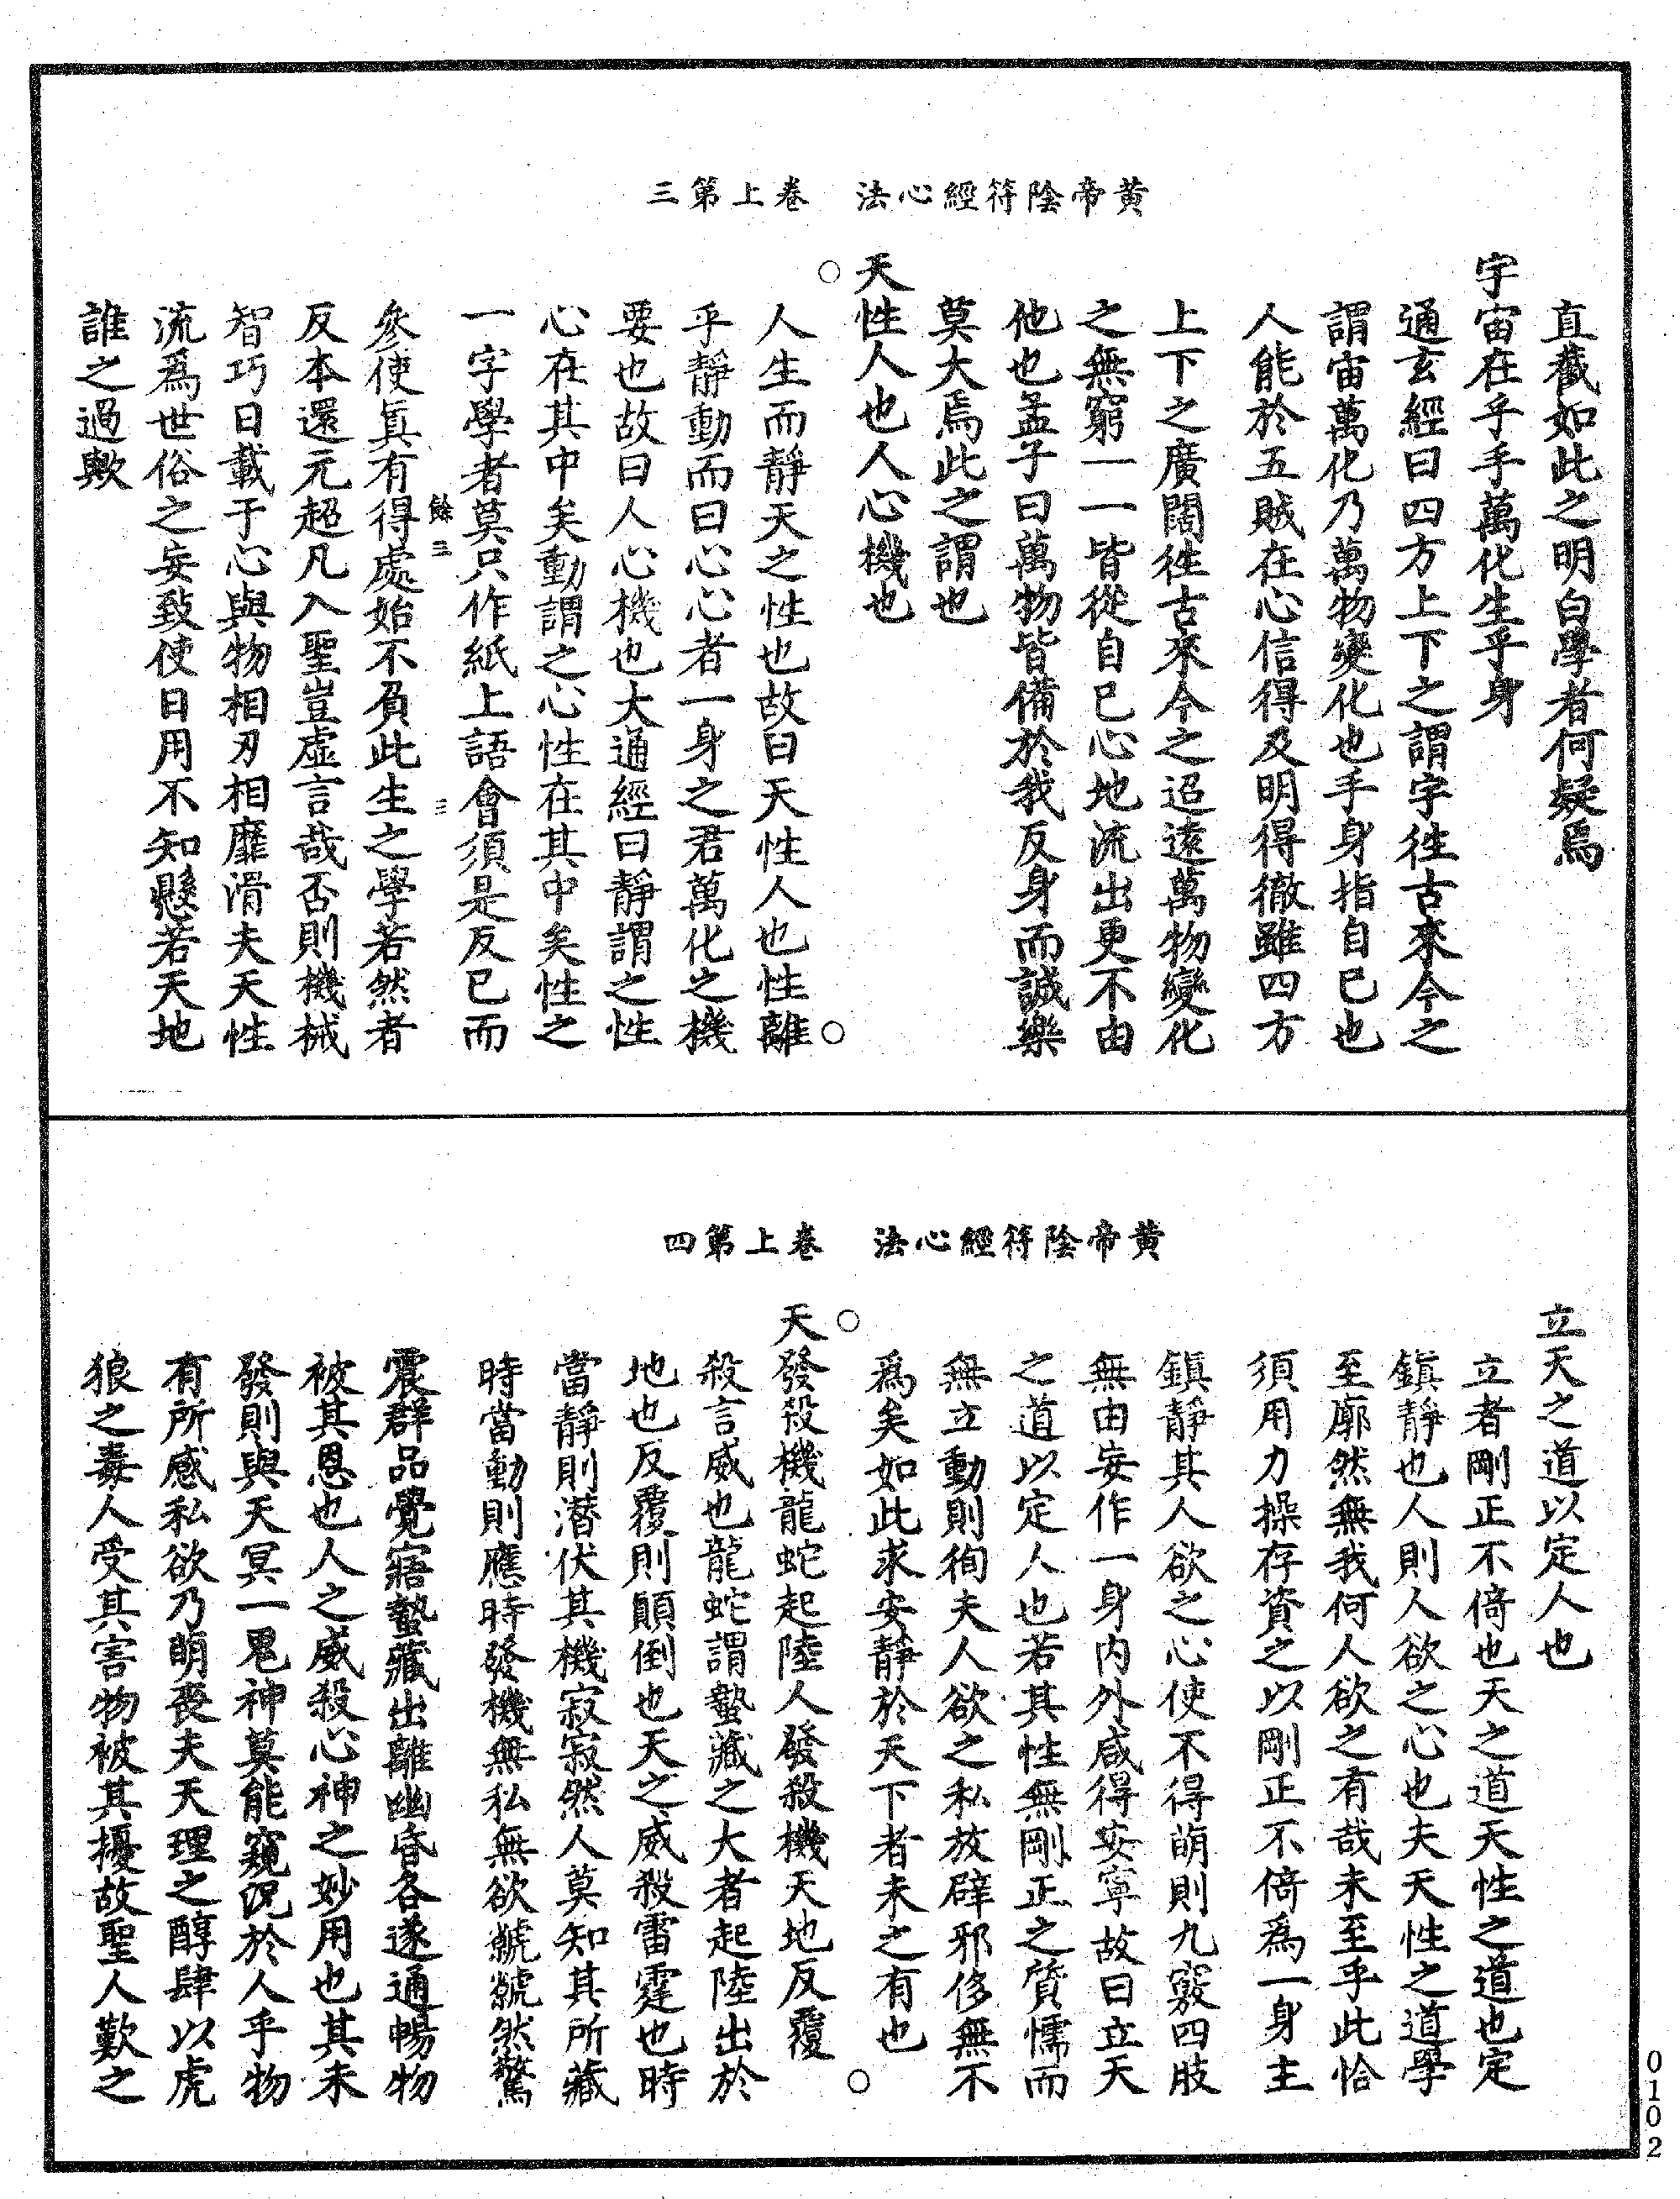 黃帝陰符經心法　卷上第三
直截如此之明白學者何疑焉
宇宙在乎手萬化生乎身
通玄經曰四方上下之謂宇徃古來今之
謂宙萬化乃萬物變化也手身指自己也
人能於五賊在心信得及明得徹雖四方
上下之廣闊徃古來今之迢遠萬物變化
之無窮一一皆從自己心地流出更不由
他也孟子曰萬物皆備於我反身而誠樂
莫大焉此之謂也
天性人也人心機也
○人生而靜天之性也故曰天性人也性離○
乎靜動而曰心心者一身之君萬化之機
要也故曰人心機也大通經曰靜謂之性
心在其中矣動謂之心性在其中矣性之
一字學者莫只作紙上語會須是反已而
餘三　三
參使眞有得處始不負此生之學若然者
反本還元超凡入聖豈虛言哉否則機械
智巧日載于心與物相刃相靡滑夫天性
流爲世俗之妄致使日用不知懸若天地
誰之過歟
黃帝陰符經心法　卷上第四
立天之道以定人也
立者剛正不倚也天之道天性之道也定
鎮靜也人則人欲之心也夫天性之道學
至廓然無我何人欲之有哉未至乎此恰
須用力操存資之以剛正不倚爲一身主
鎮靜其人欲之心使不得萌則九竅四肢
無由妄作一身內外咸得安寧故曰立天
之道以定人也若其性無剛正之質懦而
無立動則徇夫人欲之私放辟邪侈無不
爲矣如此求安靜於天下者未之有也
○天發殺機龍蛇起陸人發殺機天地反覆○
殺言威也龍蛇謂蟄藏之大者起陸出於
地也反覆則顛倒也天之威殺雷霆也時
當靜則潛伏其機寂寂然人莫知其所藏
時當動則應時發機無私無欲虩虩然驚
震群品覺寤蟄藏出離幽昏各遂通暢物
被其恩也人之威殺心神之妙用也其未
發則與天冥一鬼神莫能窺況於人乎物
有所感私欲乃萌喪夫天理之醇肆以虎
狼之毒人受其害物被其擾故聖人歎之
0102